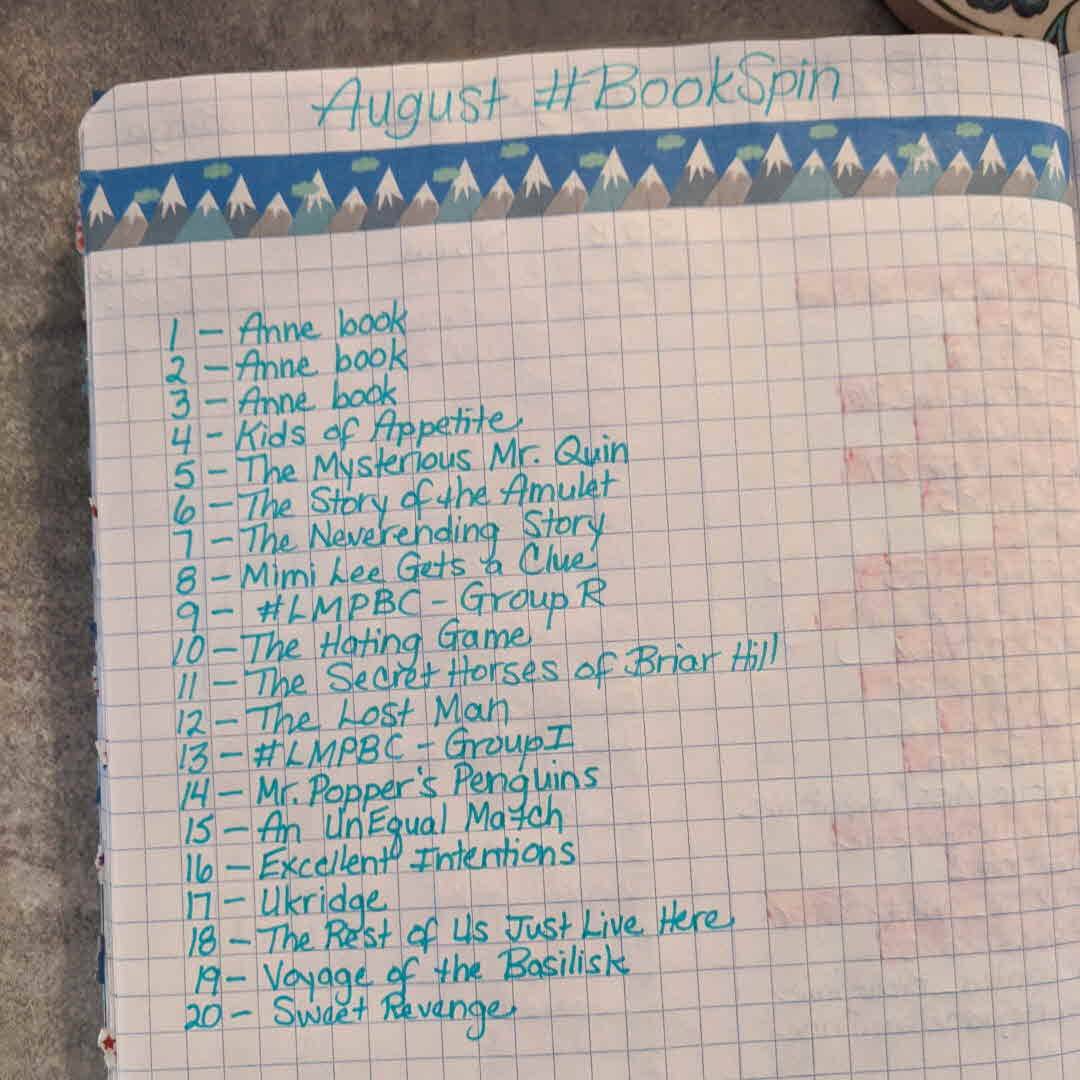 August #BookSpin
1 - Anne book
2 - Anne book
3 - Anne book
4 - Kids of Appetite
5 - The Mysterious Mr. Quin
6 - The Story of the Amulet
7 - The Neverending Story
8 - Mimi Lee Gets a Clue
9 - #LMPBC - Group R
10 - The Hating Game
11 - The Secret Horses of Briar Hill
12 - The Lost Man
13 - #LMPBC - Group I
14 - Mr. Popper's Penguins
15 - An UnEqual Match
16 - Excellent Intentions
17 - Ukridge
18 - The Rest of Us Just Live Here
19 - Voyage of the Basilisk
20 - Sweet Revenge